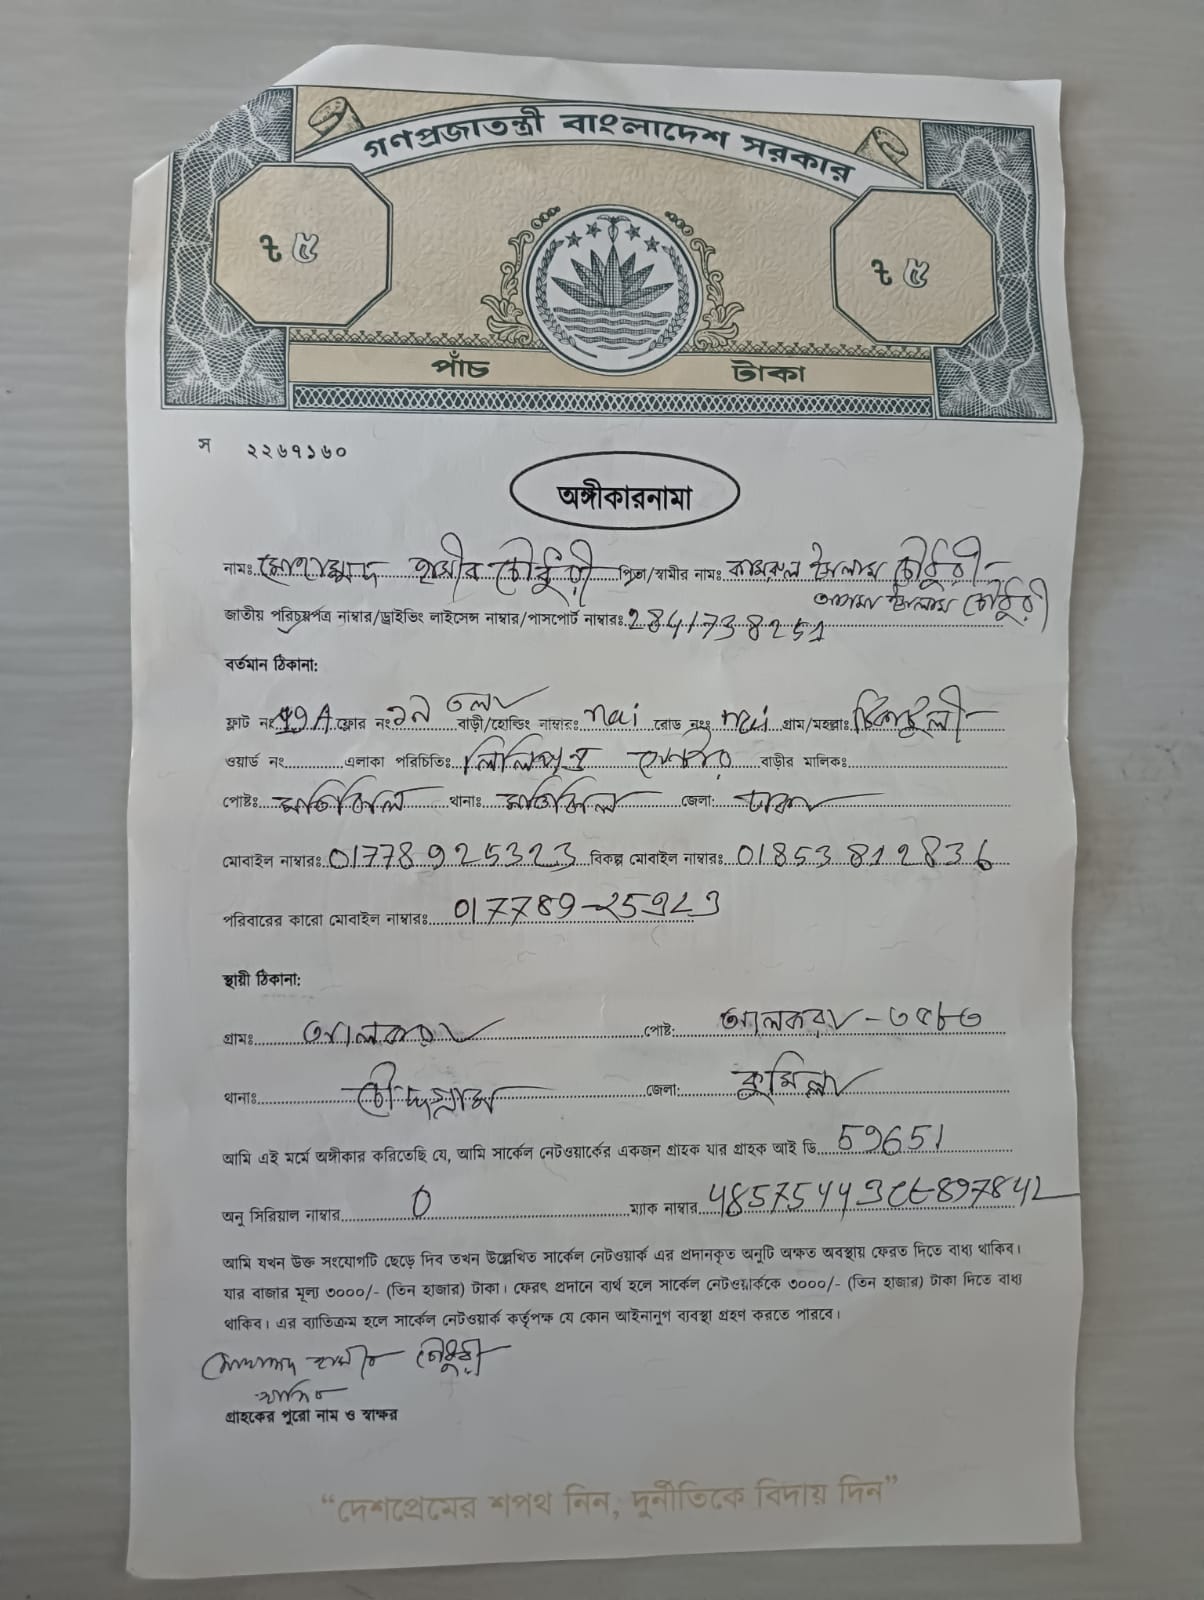 গণপ্রজাতন্ত্রী বাংলাদেশ সরকার
৳ ৫
৳ ৫
পাঁচ টাকা
স ২২৬৭১৬০
অঙ্গীকারনামা
নামঃ মোহাম্মদ হামীর চৌধুরী পিতা/স্বামীর নাম: কামরুল ইসলাম চৌধুরী
ইসলাম চৌধুরী
জাতীয় পরিচয়পত্র নাম্বার/ড্রাইভিং লাইসেন্স নাম্বার/পাসপোর্ট নাম্বারঃ 2841738251
বর্তমান ঠিকানা:
ফ্লাট নং ফ্লোর নং তলা বাড়ী/হোল্ডিং নাম্বারঃ nai রোড নংঃ nai গ্রাম/মহল্লাঃ
ওয়ার্ড নং এলাকা পরিচিতিঃ বাড়ীর মালিকঃ
পোষ্টঃ মতিঝিল থানাঃ মতিঝিল জেলা: ঢাকা
মোবাইল নাম্বারঃ বিকল্প মোবাইল নাম্বারঃ 01853812836
পরিবারের কারো মোবাইল নাম্বারঃ
স্থায়ী ঠিকানা:
গ্রামঃ আলকরা পোষ্ট: আলকরা - ৩৫৮৩
থানাঃ চৌদ্দগ্রাম জেলা: কুমিল্লা
আমি এই মর্মে অঙ্গীকার করিতেছি যে, আমি সার্কেল নেটওয়ার্কের একজন গ্রাহক যার গ্রাহক আই ডি 59651
অনু সিরিয়াল নাম্বার 0 ম্যাক নাম্বার
আমি যখন উক্ত সংযোগটি ছেড়ে দিব তখন উল্লেখিত সার্কেল নেটওয়ার্ক এর প্রদানকৃত অনুটি অক্ষত অবস্থায় ফেরত দিতে বাধ্য থাকিব।
যার বাজার মূল্য ৩০০০/- (তিন হাজার) টাকা। ফেরৎ প্রদানে ব্যর্থ হলে সার্কেল নেটওয়ার্ককে ৩০০০/- (তিন হাজার) টাকা দিতে বাধ্য
থাকিব। এর ব্যতিক্রম হলে সার্কেল নেটওয়ার্ক কর্তৃপক্ষ যে কোন আইনানুগ ব্যবস্থা গ্রহণ করতে পারবে।
মোহাম্মদ হামীর চৌধুরী
গ্রাহকের পুরো নাম ও স্বাক্ষর
“দেশপ্রেমের শপথ নিন, দুর্নীতিকে বিদায় দিন”